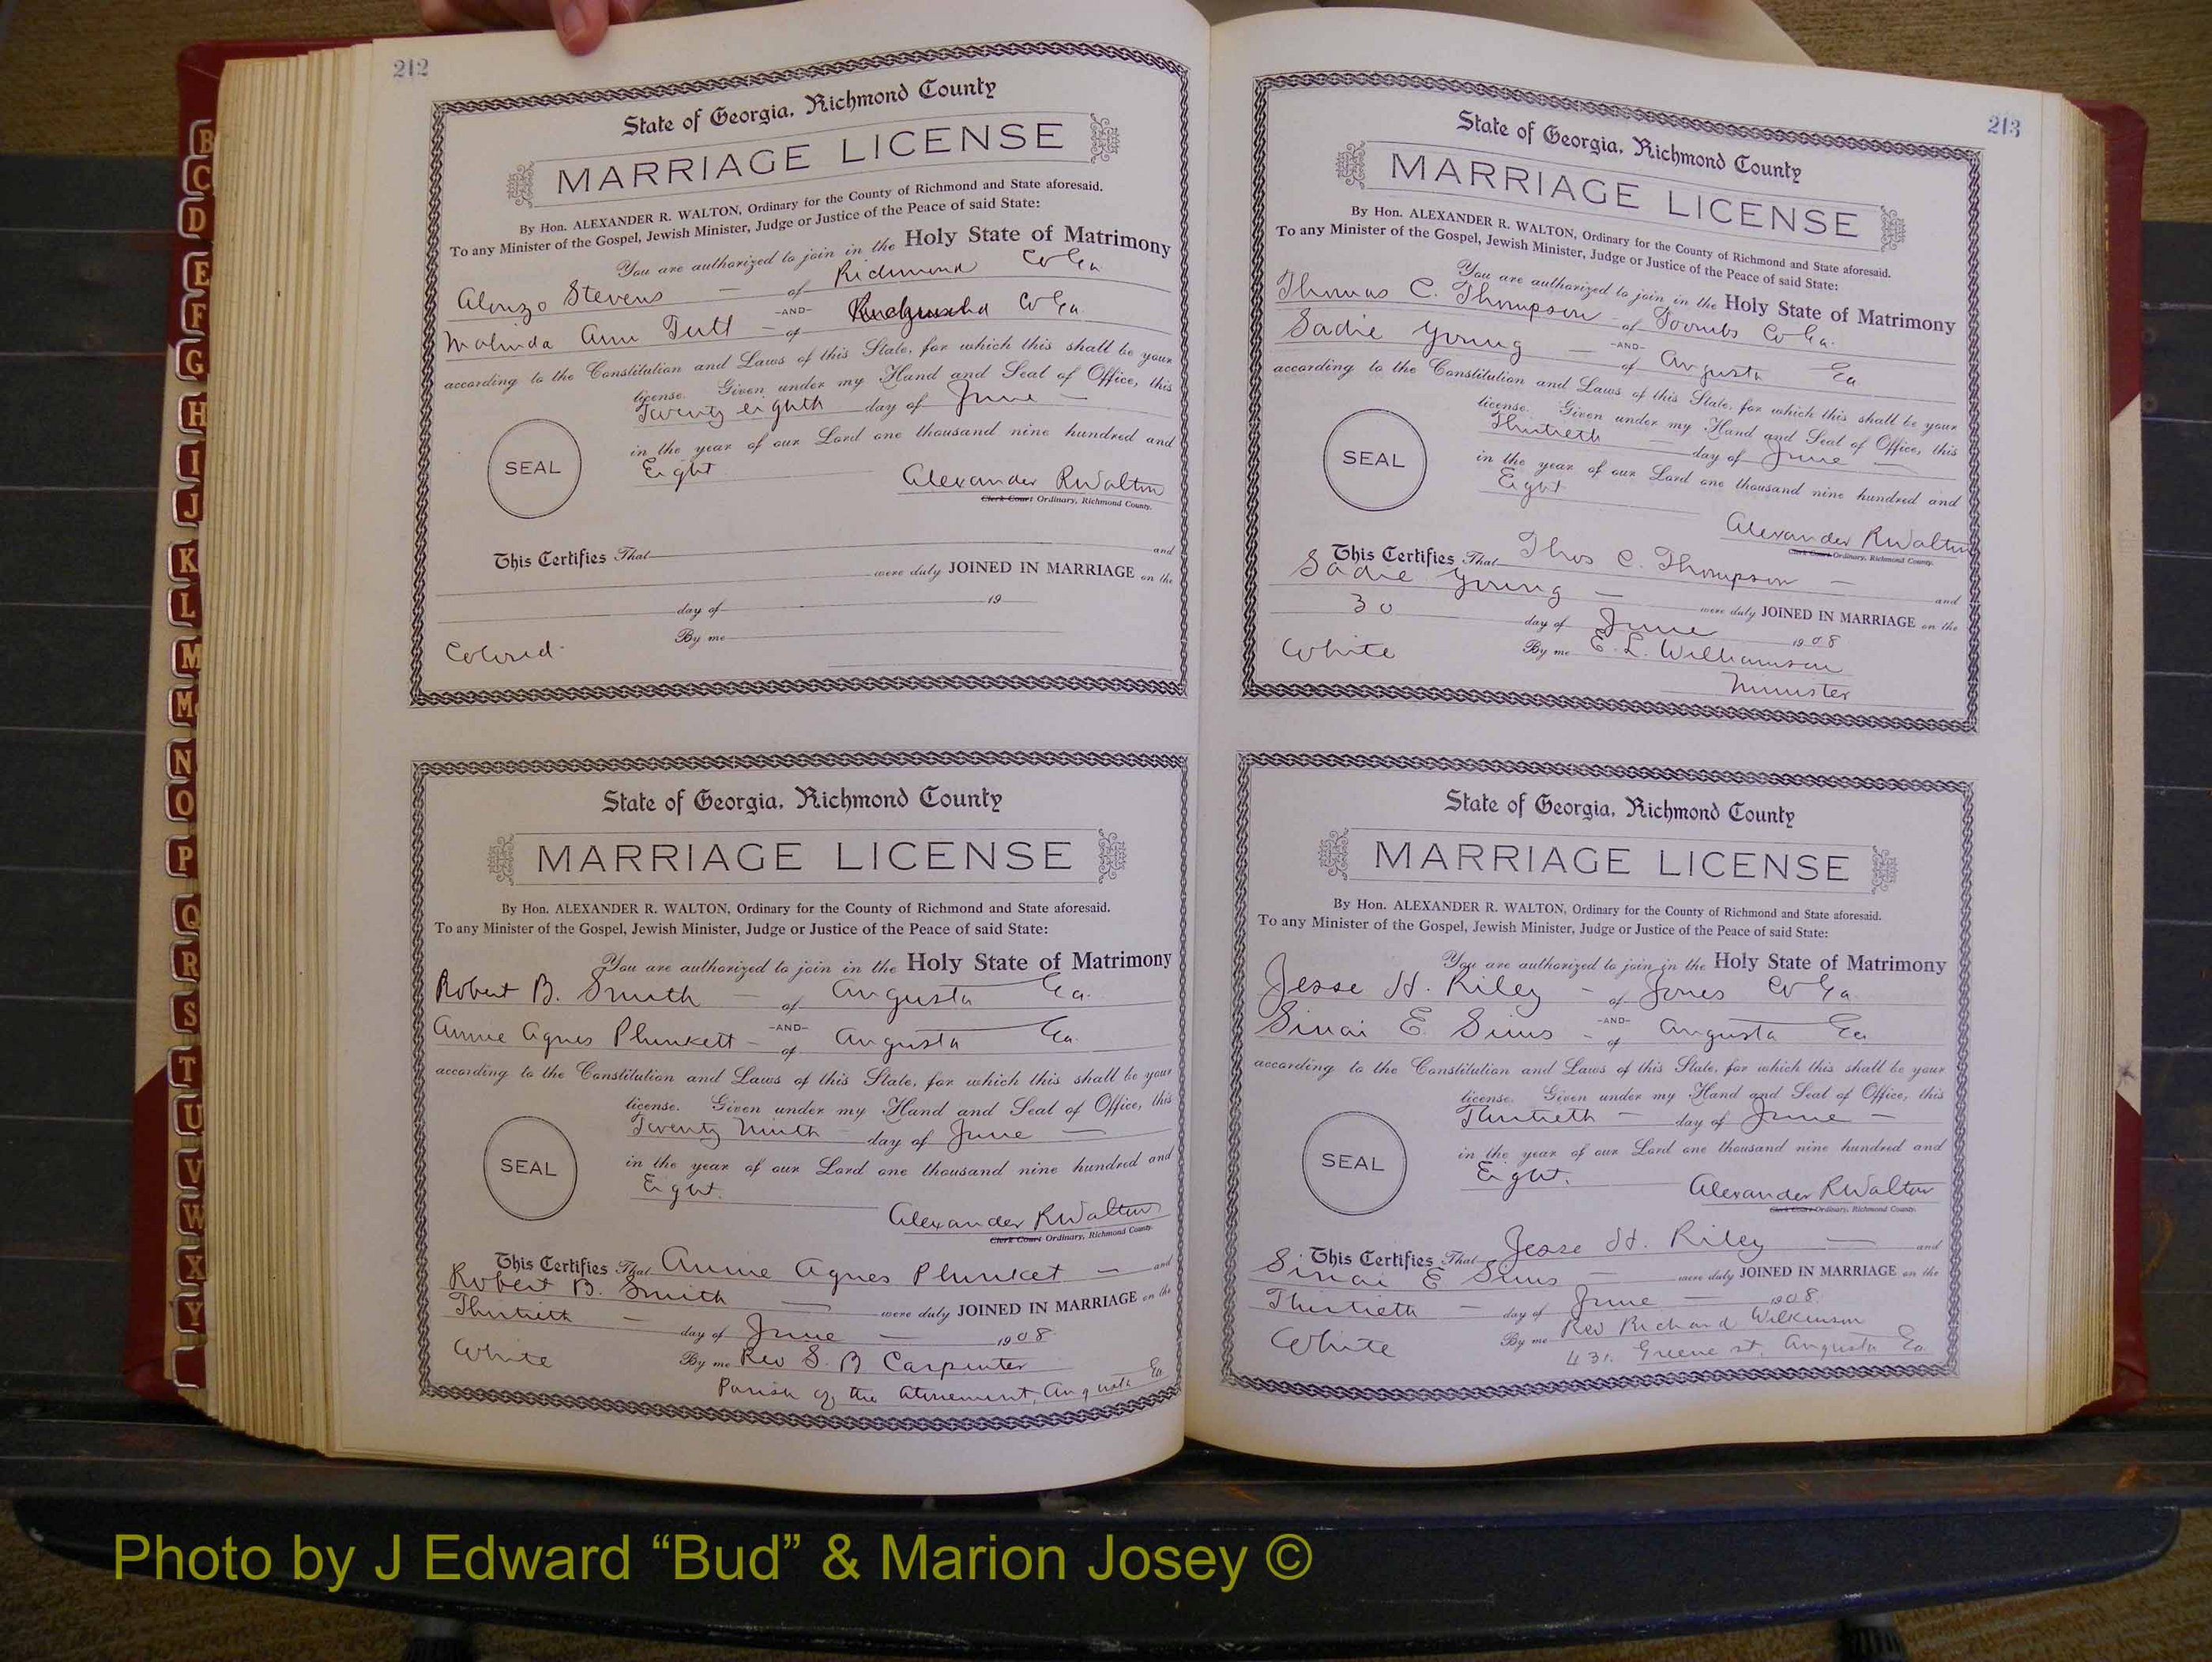 212
State of Georgia, Richmond County
MARRIAGE LICENSE
By Hon. ALEXANDER R. WALTON, Ordinary for the County of Richmond and State aforesaid.
To any Minister of the Gospel, Jewish Minister, Judge or Justice of the Peace of said State:
You are authorized to join in the Holy State of Matrimony
Alonzo Stevens — of Richmond Co Ga.
-AND-
Malinda Ann Tutt — of Co Ga.
according to the Constitution and Laws of this State, for which this shall be your
license. Given under my Hand and Seal of Office, this
Twenty eighth day of June —
in the year of our Lord one thousand nine hundred and
SEAL
Eight
Alexander R Walton
Clerk Court Ordinary, Richmond County.
This Certifies That and
were duly JOINED IN MARRIAGE on the
day of 19
Colored. By me
State of Georgia, Richmond County
MARRIAGE LICENSE
By Hon. ALEXANDER R. WALTON, Ordinary for the County of Richmond and State aforesaid.
To any Minister of the Gospel, Jewish Minister, Judge or Justice of the Peace of said State:
You are authorized to join in the Holy State of Matrimony
Robert B. Smith — of Augusta Ga.
-AND-
Annie Agnes Plunkett — of Augusta Ga.
according to the Constitution and Laws of this State, for which this shall be your
license. Given under my Hand and Seal of Office, this
Twenty Ninth day of June —
in the year of our Lord one thousand nine hundred and
SEAL
Eight.
Alexander R Walton
Clerk Court Ordinary, Richmond County.
This Certifies That Annie Agnes Plunket — and
Robert B. Smith — were duly JOINED IN MARRIAGE on the
Thirtieth — day of June — 1908
White By me Rev S. B Carpenter
Parish of the Atonement, Augusta Ga
213
State of Georgia, Richmond County
MARRIAGE LICENSE
By Hon. ALEXANDER R. WALTON, Ordinary for the County of Richmond and State aforesaid.
To any Minister of the Gospel, Jewish Minister, Judge or Justice of the Peace of said State:
You are authorized to join in the Holy State of Matrimony
Thomas C. Thompson of Toombs Co Ga.
-AND-
Sadie Young — of Augusta Ga
according to the Constitution and Laws of this State, for which this shall be your
license. Given under my Hand and Seal of Office, this
Thirtieth day of June —
in the year of our Lord one thousand nine hundred and
SEAL
Eight
Alexander R Walton
Clerk Court Ordinary, Richmond County.
This Certifies That Thos C. Thompson — and
Sadie Young — were duly JOINED IN MARRIAGE on the
30 day of June 1908
White By me E. L. Williamson
Minister
State of Georgia, Richmond County
MARRIAGE LICENSE
By Hon. ALEXANDER R. WALTON, Ordinary for the County of Richmond and State aforesaid.
To any Minister of the Gospel, Jewish Minister, Judge or Justice of the Peace of said State:
You are authorized to join in the Holy State of Matrimony
Jesse H. Riley — of Jones Co Ga.
-AND-
Sinai E. Sims — of Augusta Ga
according to the Constitution and Laws of this State, for which this shall be your
license. Given under my Hand and Seal of Office, this
Thirtieth — day of June —
in the year of our Lord one thousand nine hundred and
SEAL
Eight.
Alexander R Walton
Clerk Court Ordinary, Richmond County.
This Certifies That Jesse H. Riley — and
Sinai E Sims — were duly JOINED IN MARRIAGE on the
Thirtieth — day of June — 1908.
White By me Rev Richard Wilkinson
431. Greene st, Augusta Ga
B
C
D
E
F
G
H
I
J
K
L
M
M
N
O
P
Q
R
S
T
U
V
W
X
Y
Photo by J Edward “Bud” & Marion Josey ©